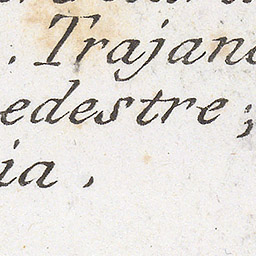 . Trajano
edestre;
ia.